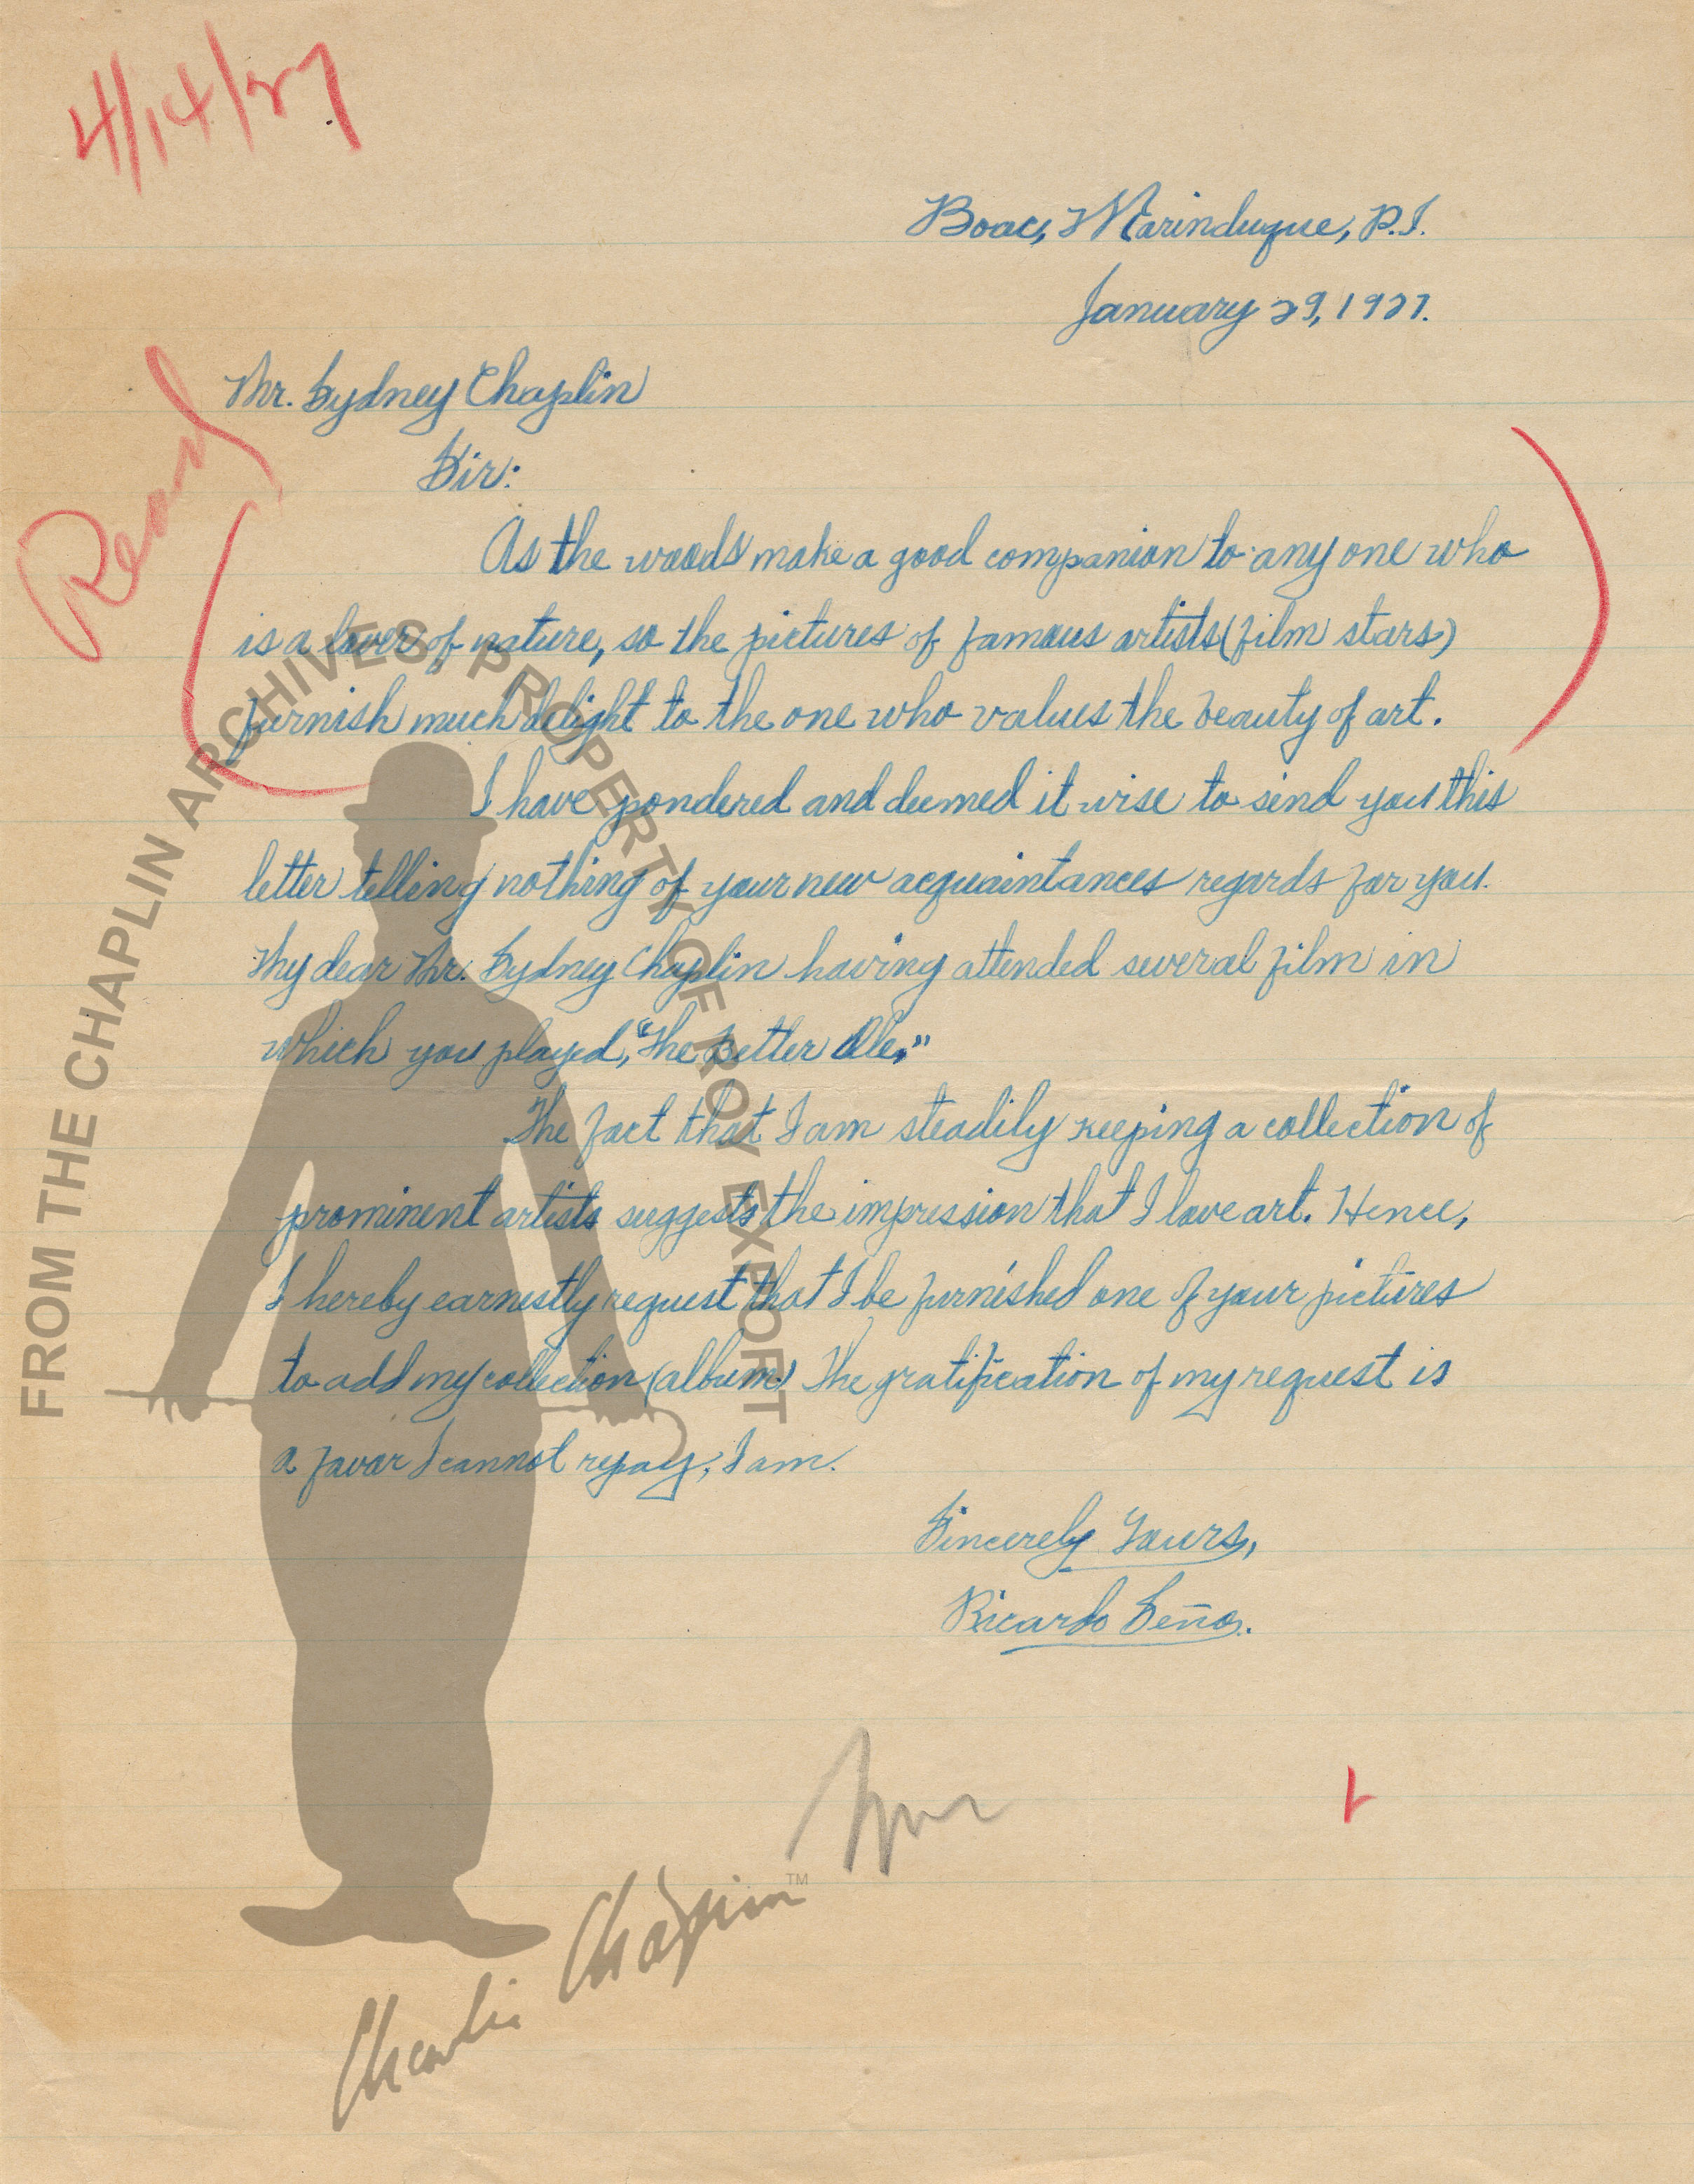 4/14/27
Boac, Marinduque, P.I.
January 29, 1927.
Read
Mr. Sydney Chaplin
Sir:
As the woods make a good companion to any one who
is a lover of nature, so the pictures of famous artists (film stars)
furnish much delight to the one who values the beauty of art.
I have pondered and deemed it wise to send you this
letter telling nothing of your new acquaintances regards for you.
My dear Mr. Sydney Chaplin having attended several film in
which you played, "The Better Ole."
The fact that I am steadily keeping a collection of
prominent artists suggests the impression that I love art. Hence,
I hereby earnestly request that I be furnished one of your pictures
to add my collection (album) The gratification of my request is
a favor I cannot repay, I am.
Sincerely Yours,
Ricardo Seño.
FROM THE CHAPLIN ARCHIVES, PROPERTY OF ROY EXPORT
Charlie Chaplin TM